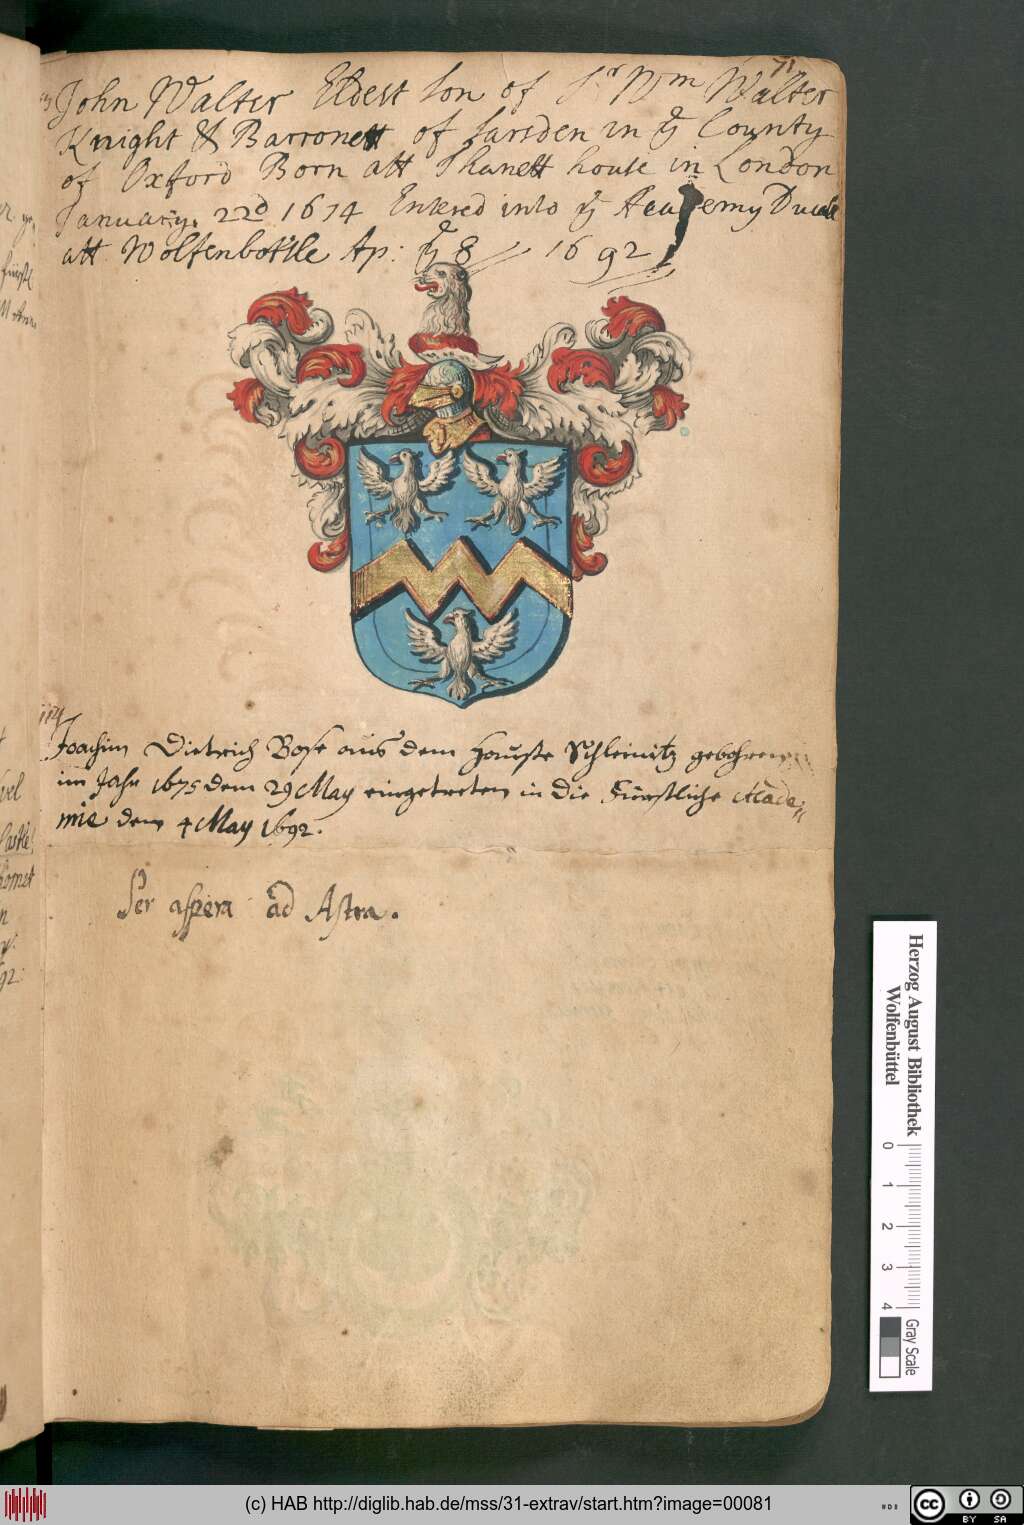 71
John Walter Eldest Son of Sr Wm Walter
Knight & Barronett of Sarsden in ye County
of Oxford Born att Thanett house in London
January. 22d 1674 Entered into ye Academy Ducale
att Wolfenbottle Ap: ye 8 1692
114
Joachim Dietrich Bose aus dem Hausse Schleinitz gebohren
im Jahr 1675 dem 29 May eingetreten in die Fürstliche Acade-
mie dem 4 May 1692.
Per aspera ad Astra.
Herzog August Bibliothek
Wolfenbüttel
0 1 2 3 4
Gray Scale
(c) HAB http://diglib.hab.de/mss/31-extrav/start.htm?image=00081
cc BY SA